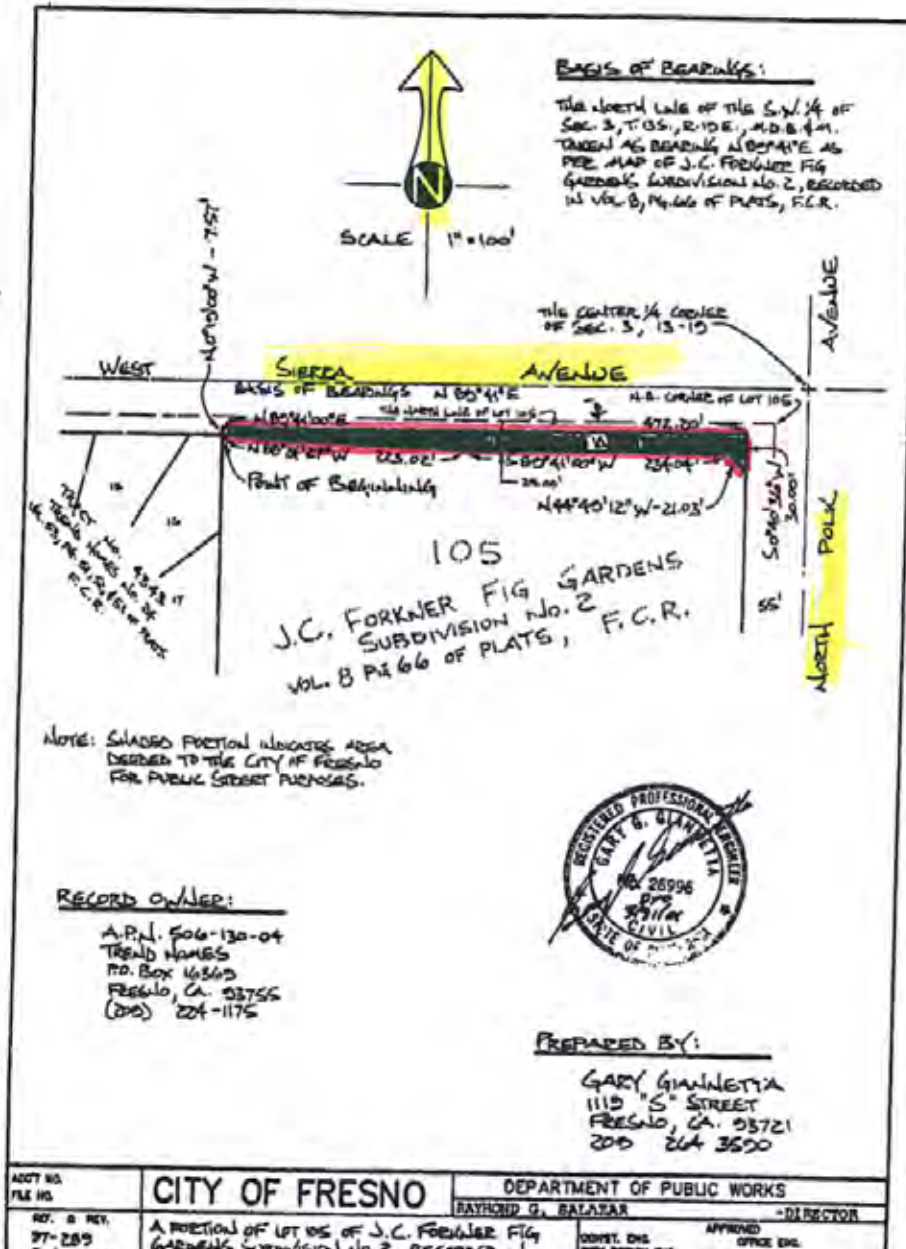 BASIS OF BEARINGS:
THE NORTH LINE OF THE S.W. 1/4 OF
SEC. 3, T.13S., R.19E., M.D.B.&M.
TAKEN AS BEARING N89°41'E AS
PER MAP OF J.C. FORKNER FIG
GARDENS SUBDIVISION NO. 2, RECORDED
IN VOL. 8, PG. 66 OF PLATS, F.C.R.
N
SCALE 1"=100'
N0°19'00"W - 7.57'
THE CENTER 1/4 CORNER
OF SEC. 3, 13-19
AVENUE
WEST SIERRA AVENUE
BASIS OF BEARINGS N 89°41'E
N.E. CORNER OF LOT 105
N 89°41'00"E THE NORTH LINE OF LOT 105 472.20'
223.02' S 89°41'00"W 234.04'
POINT OF BEGINNING
N44°49'12"W-21.03'
30.00'
55'
NORTH POLK
16
17
TRACT NO. 4343
TREND HOMES NO.
OF PLATS
F.C.R.
105
J.C. FORKNER FIG GARDENS
SUBDIVISION NO. 2
VOL. 8 PG 66 OF PLATS, F.C.R.
NOTE: SHADED PORTION INDICATES AREA
DEEDED TO THE CITY OF FRESNO
FOR PUBLIC STREET PURPOSES.
REGISTERED PROFESSIONAL ENGINEER
GARY G. GIANNETTA
No. 26996
CIVIL
STATE OF
RECORD OWNER:
A.P.N. 506-130-04
TREND HOMES
P.O. BOX 16369
FRESNO, CA. 93755
(209) 224-1175
PREPARED BY:
GARY GIANNETTA
1119 "S" STREET
FRESNO, CA. 93721
209 264 3590
FILE NO.
CITY OF FRESNO
DEPARTMENT OF PUBLIC WORKS
RAYMOND G. SALAZAR -DIRECTOR
REF. & REV.
97-289
A PORTION OF LOT 105 OF J.C. FORKNER FIG
GARDENS SUBDIVISION NO. 2, RECORDED IN
APPROVED
CONST. ENG.
OFFICE ENG.